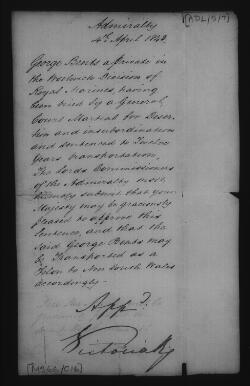 [ADL/S/7]
Admiralty
4th April 1842
George Beats a Private in
the Woolwich Division of
Royal Marines, having
been tried by a General
Court Martial for Deser-
tion and insubordination
and sentenced to Twelve
Years transportation,
The Lords Commissioners
of the Admiralty most
humbly submit that your
Majesty may be graciously
pleased to approve this
sentence, and that the
said George Beats may
be Transported as a
Felon to New South Wales
accordingly.
Appd.
Victoria R